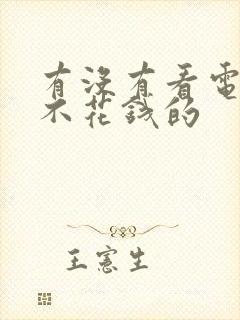 有沒有看電
不花錢的
王憲生